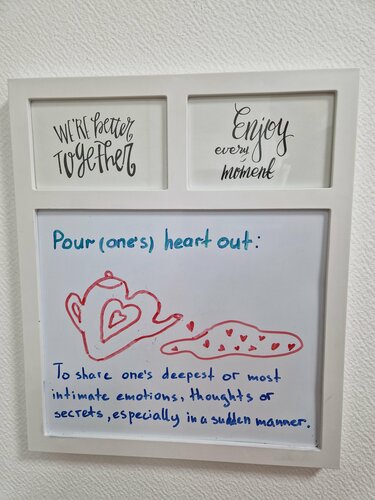 WE'RE better
TOgether
Enjoy
every
moment
Pour (one's) heart out:
To share one's deepest or most
intimate emotions, thoughts or
secrets, especially in a sudden manner.